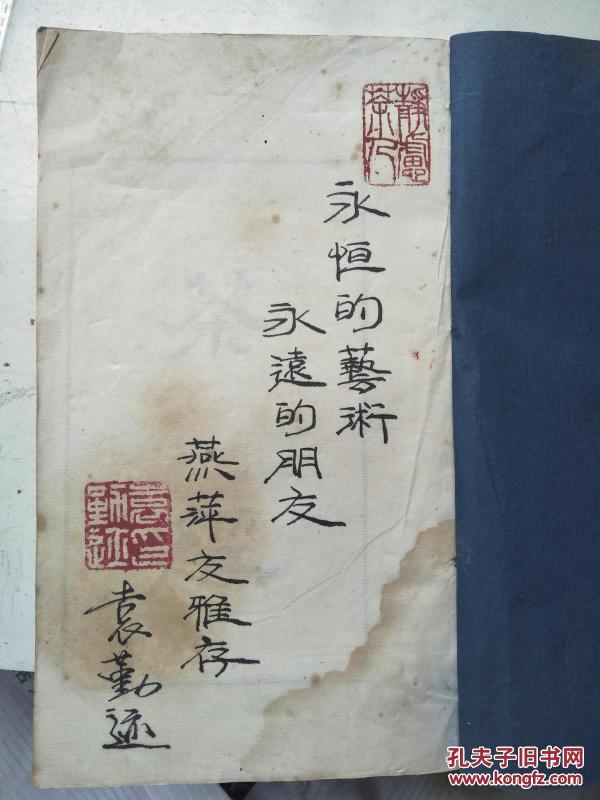 永恒的藝術
永遠的朋友
燕萍友雅存
袁勤迹
袁印勤迹
孔夫子旧书网
www.kongfz.com